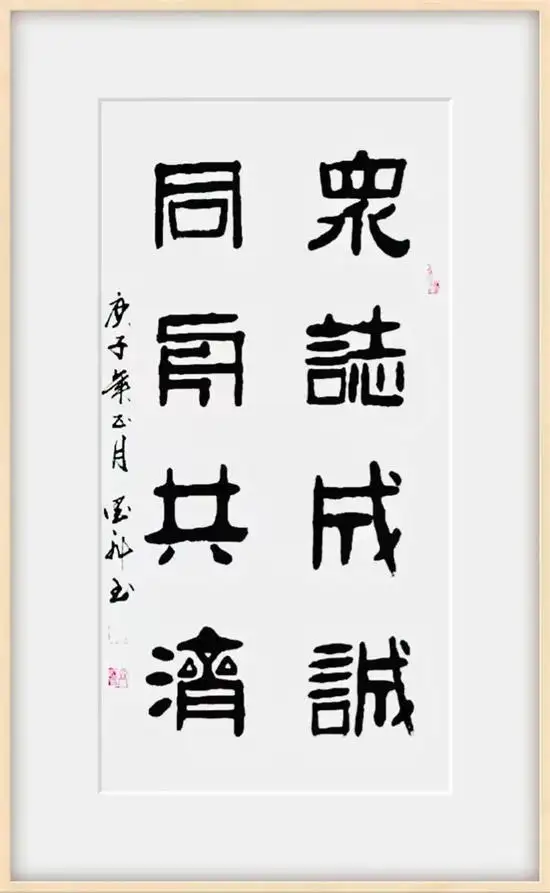 眾誌成誠
同舟共濟
庚子年正月